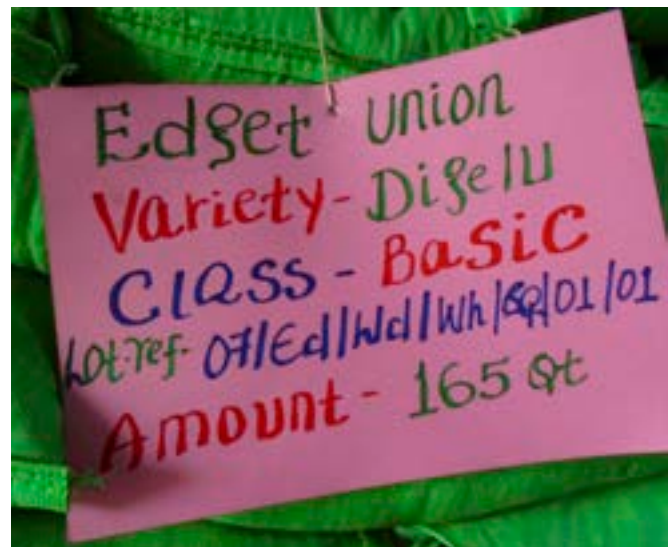 Edget Union
Variety- Digelu
Class - Basic
Lot.ref- 07/Ed/Wd/Wh/
Amount - 165 Qt